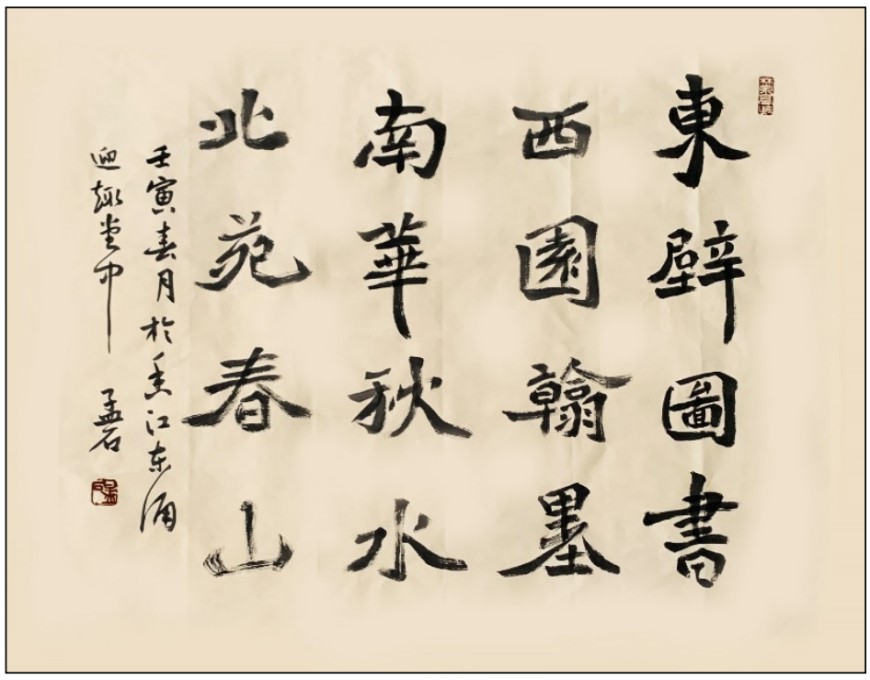 東壁圖書
西園翰墨
南華秋水
北苑春山
壬寅春月於香江东涌
迎趣堂中 孟石